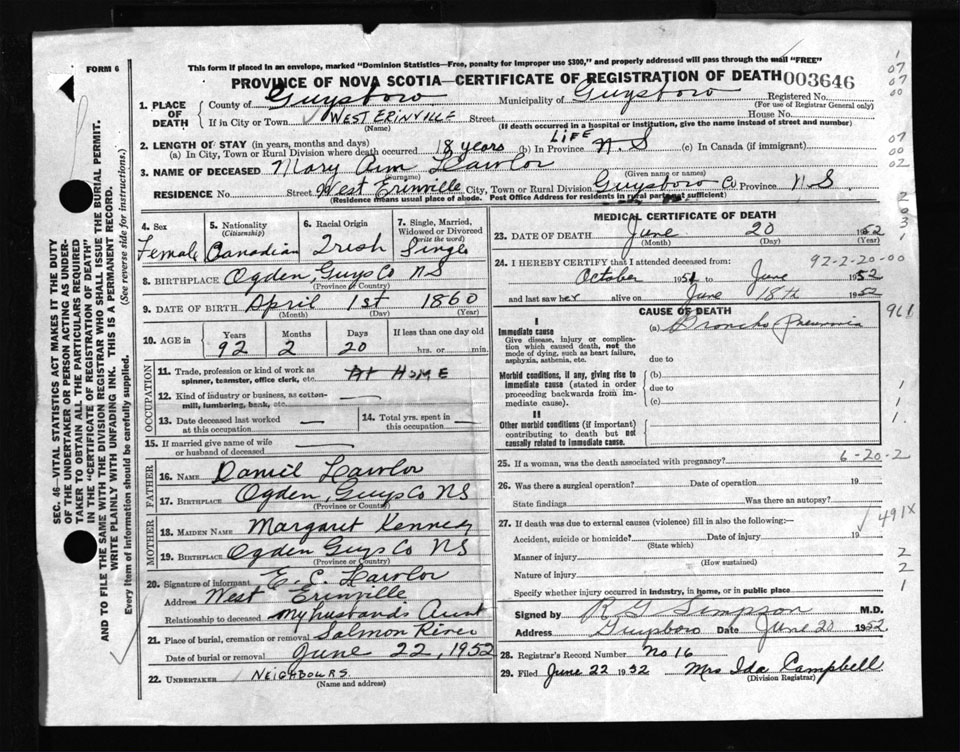 FORM 6
This form if placed in an envelope, marked "Dominion Statistics—Free, penalty for improper use $300," and properly addressed will pass through the mail "FREE"
PROVINCE OF NOVA SCOTIA—CERTIFICATE OF REGISTRATION OF DEATH 003646
Registered No.
(For use of Registrar General only)
1. PLACE OF DEATH
County of Guysboro Municipality of Guysboro
If in City or Town WEST ERINVILLE Street House No.
(Name) (If death occurred in a hospital or institution, give the name instead of street and number)
2. LENGTH OF STAY (in years, months and days)
(a) In City, Town or Rural Division where death occurred 18 years (b) In Province LIFE N.S (c) In Canada (if immigrant)
3. NAME OF DECEASED Mary Ann Lawlor
(Surname) (Given name or names)
RESIDENCE No. Street West Erinville City, Town or Rural Division Guysboro Co Province N S
(Residence means usual place of abode. Post Office Address for residents in rural parts not sufficient)
4. Sex Female
5. Nationality (Citizenship) Canadian
6. Racial Origin Irish
7. Single, Married, Widowed or Divorced (write the word) Single
8. BIRTHPLACE Ogden, Guys Co NS
(Province or Country)
9. DATE OF BIRTH April 1st 1860
(Month) (Day) (Year)
10. AGE in Years Months Days If less than one day old
92 2 20 hrs. or min.
OCCUPATION
11. Trade, profession or kind of work as spinner, teamster, office clerk, etc. At HOME
12. Kind of industry or business, as cotton-mill, lumbering, bank, etc. —
13. Date deceased last worked at this occupation —
14. Total yrs. spent in this occupation —
15. If married give name of wife or husband of deceased —
FATHER
16. NAME Daniel Lawlor
17. BIRTHPLACE Ogden, Guys Co NS
(Province or Country)
MOTHER
18. MAIDEN NAME Margaret Kennedy
19. BIRTHPLACE Ogden Guys Co NS
(Province or Country)
20. Signature of informant E. C. Lawlor
Address West Erinville
Relationship to deceased My husbands Aunt
21. Place of burial, cremation or removal Salmon River
Date of burial or removal June 22, 1952
22. UNDERTAKER NEIGHBOURS.
(Name and address)
MEDICAL CERTIFICATE OF DEATH
23. DATE OF DEATH June 20 1952
(Month) (Day) (Year)
24. I HEREBY CERTIFY that I attended deceased from: 92-2-20-00
October 1951 to June 1952
and last saw her alive on June 18th 1952
CAUSE OF DEATH
I
Immediate cause
Give disease, injury or complication which caused death, not the mode of dying, such as heart failure, asphyxia, asthenia, etc.
(a) Broncho Pneumonia
due to
Morbid conditions, if any, giving rise to immediate cause (stated in order proceeding backwards from immediate cause).
(b)
due to
(c)
II
Other morbid conditions (if important) contributing to death but not causally related to immediate cause.
25. If a woman, was the death associated with pregnancy? 6-20-2
26. Was there a surgical operation? Date of operation 19
State findings Was there an autopsy?
27. If death was due to external causes (violence) fill in also the following:—
Accident, suicide or homicide? Date of injury 19
(State which)
Manner of injury
(How sustained)
Nature of injury
Specify whether injury occurred in industry, in home, or in public place
Signed by R G Simpson M.D.
Address Guysboro Date June 20 1952
28. Registrar's Record Number No 16
29. Filed June 22 1952 Mrs Ida Campbell
(Division Registrar)
SEC. 46—VITAL STATISTICS ACT MAKES IT THE DUTY
OF THE UNDERTAKER OR PERSON ACTING AS UNDERTAKER TO OBTAIN ALL THE PARTICULARS REQUIRED
IN THE "CERTIFICATE OF REGISTRATION OF DEATH"
AND TO FILE THE SAME WITH THE DIVISION REGISTRAR WHO SHALL ISSUE THE BURIAL PERMIT.
WRITE PLAINLY WITH UNFADING INK. THIS IS A PERMANENT RECORD.
Every item of information should be carefully supplied. (See reverse side for instructions.)
1
07
07
00
07
00
02
2
0
3
1
961
1
1
1
491X
2
2
1